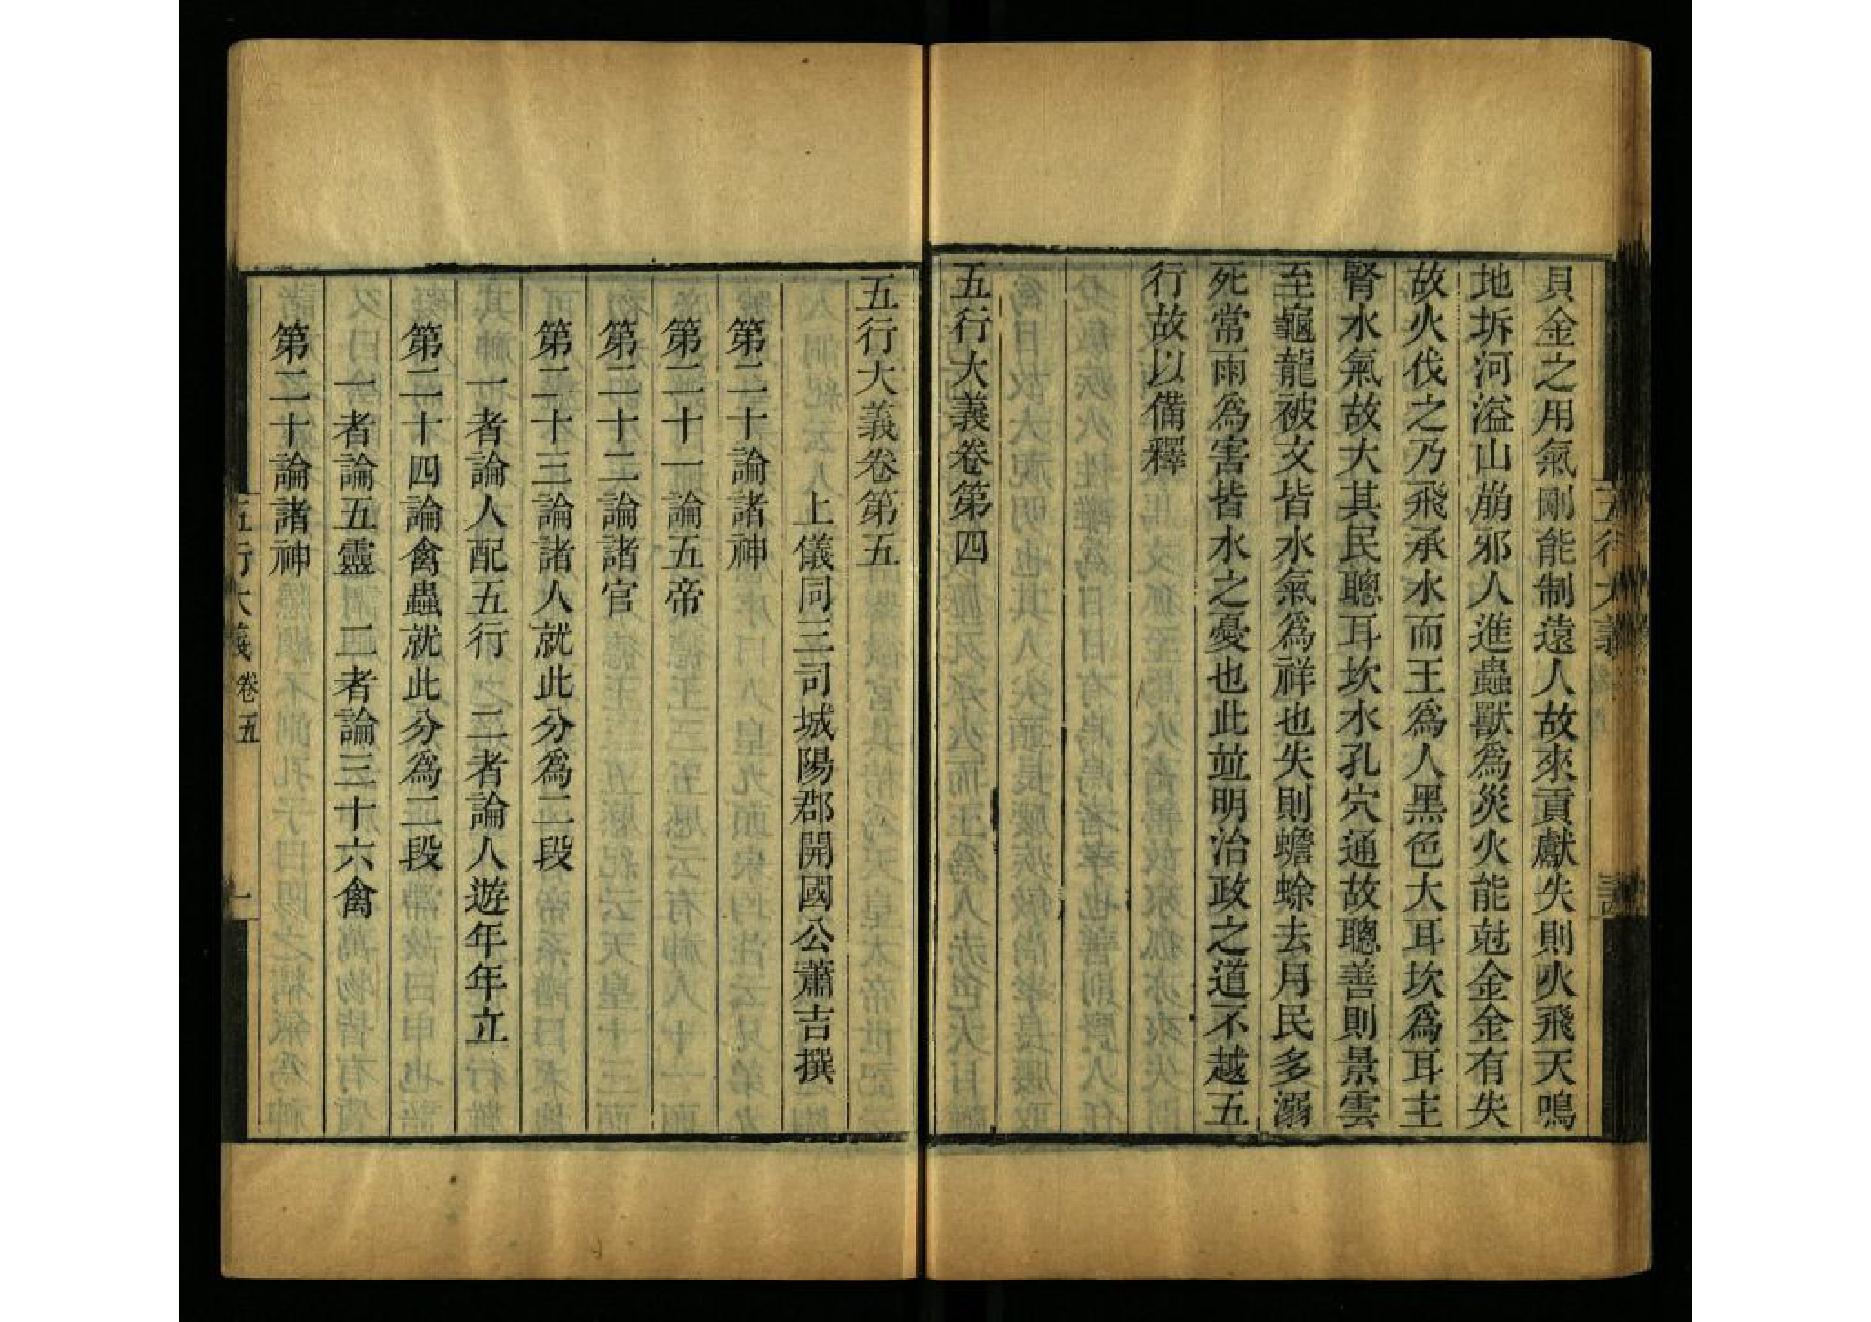 貝金之用氣剛能制遠人故來貢獻失則火飛天鳴
地坼河溢山崩邪人進蟲獸爲災火能尅金金有失
故火伐之乃飛承水而王爲人黑色大耳坎爲耳主
腎水氣故大其民聰耳坎水孔穴通故聰善則景雲
至龜龍被文皆水氣爲祥也失則蟾蜍去月民多溺
死常雨爲害皆水之憂也此並明治政之道不越五
行故以備釋
五行大義卷第四
五行大義卷第五
上儀同三司城陽郡開國公蕭吉撰
第二十論諸神
第二十一論五帝
第二十二論諸官
第二十三論諸人就此分爲二段
一者論人配五行 二者論人遊年年立
第二十四論禽蟲就此分爲二段
一者論五靈 二者論三十六禽
第二十論諸神
五行大義 卷五 一